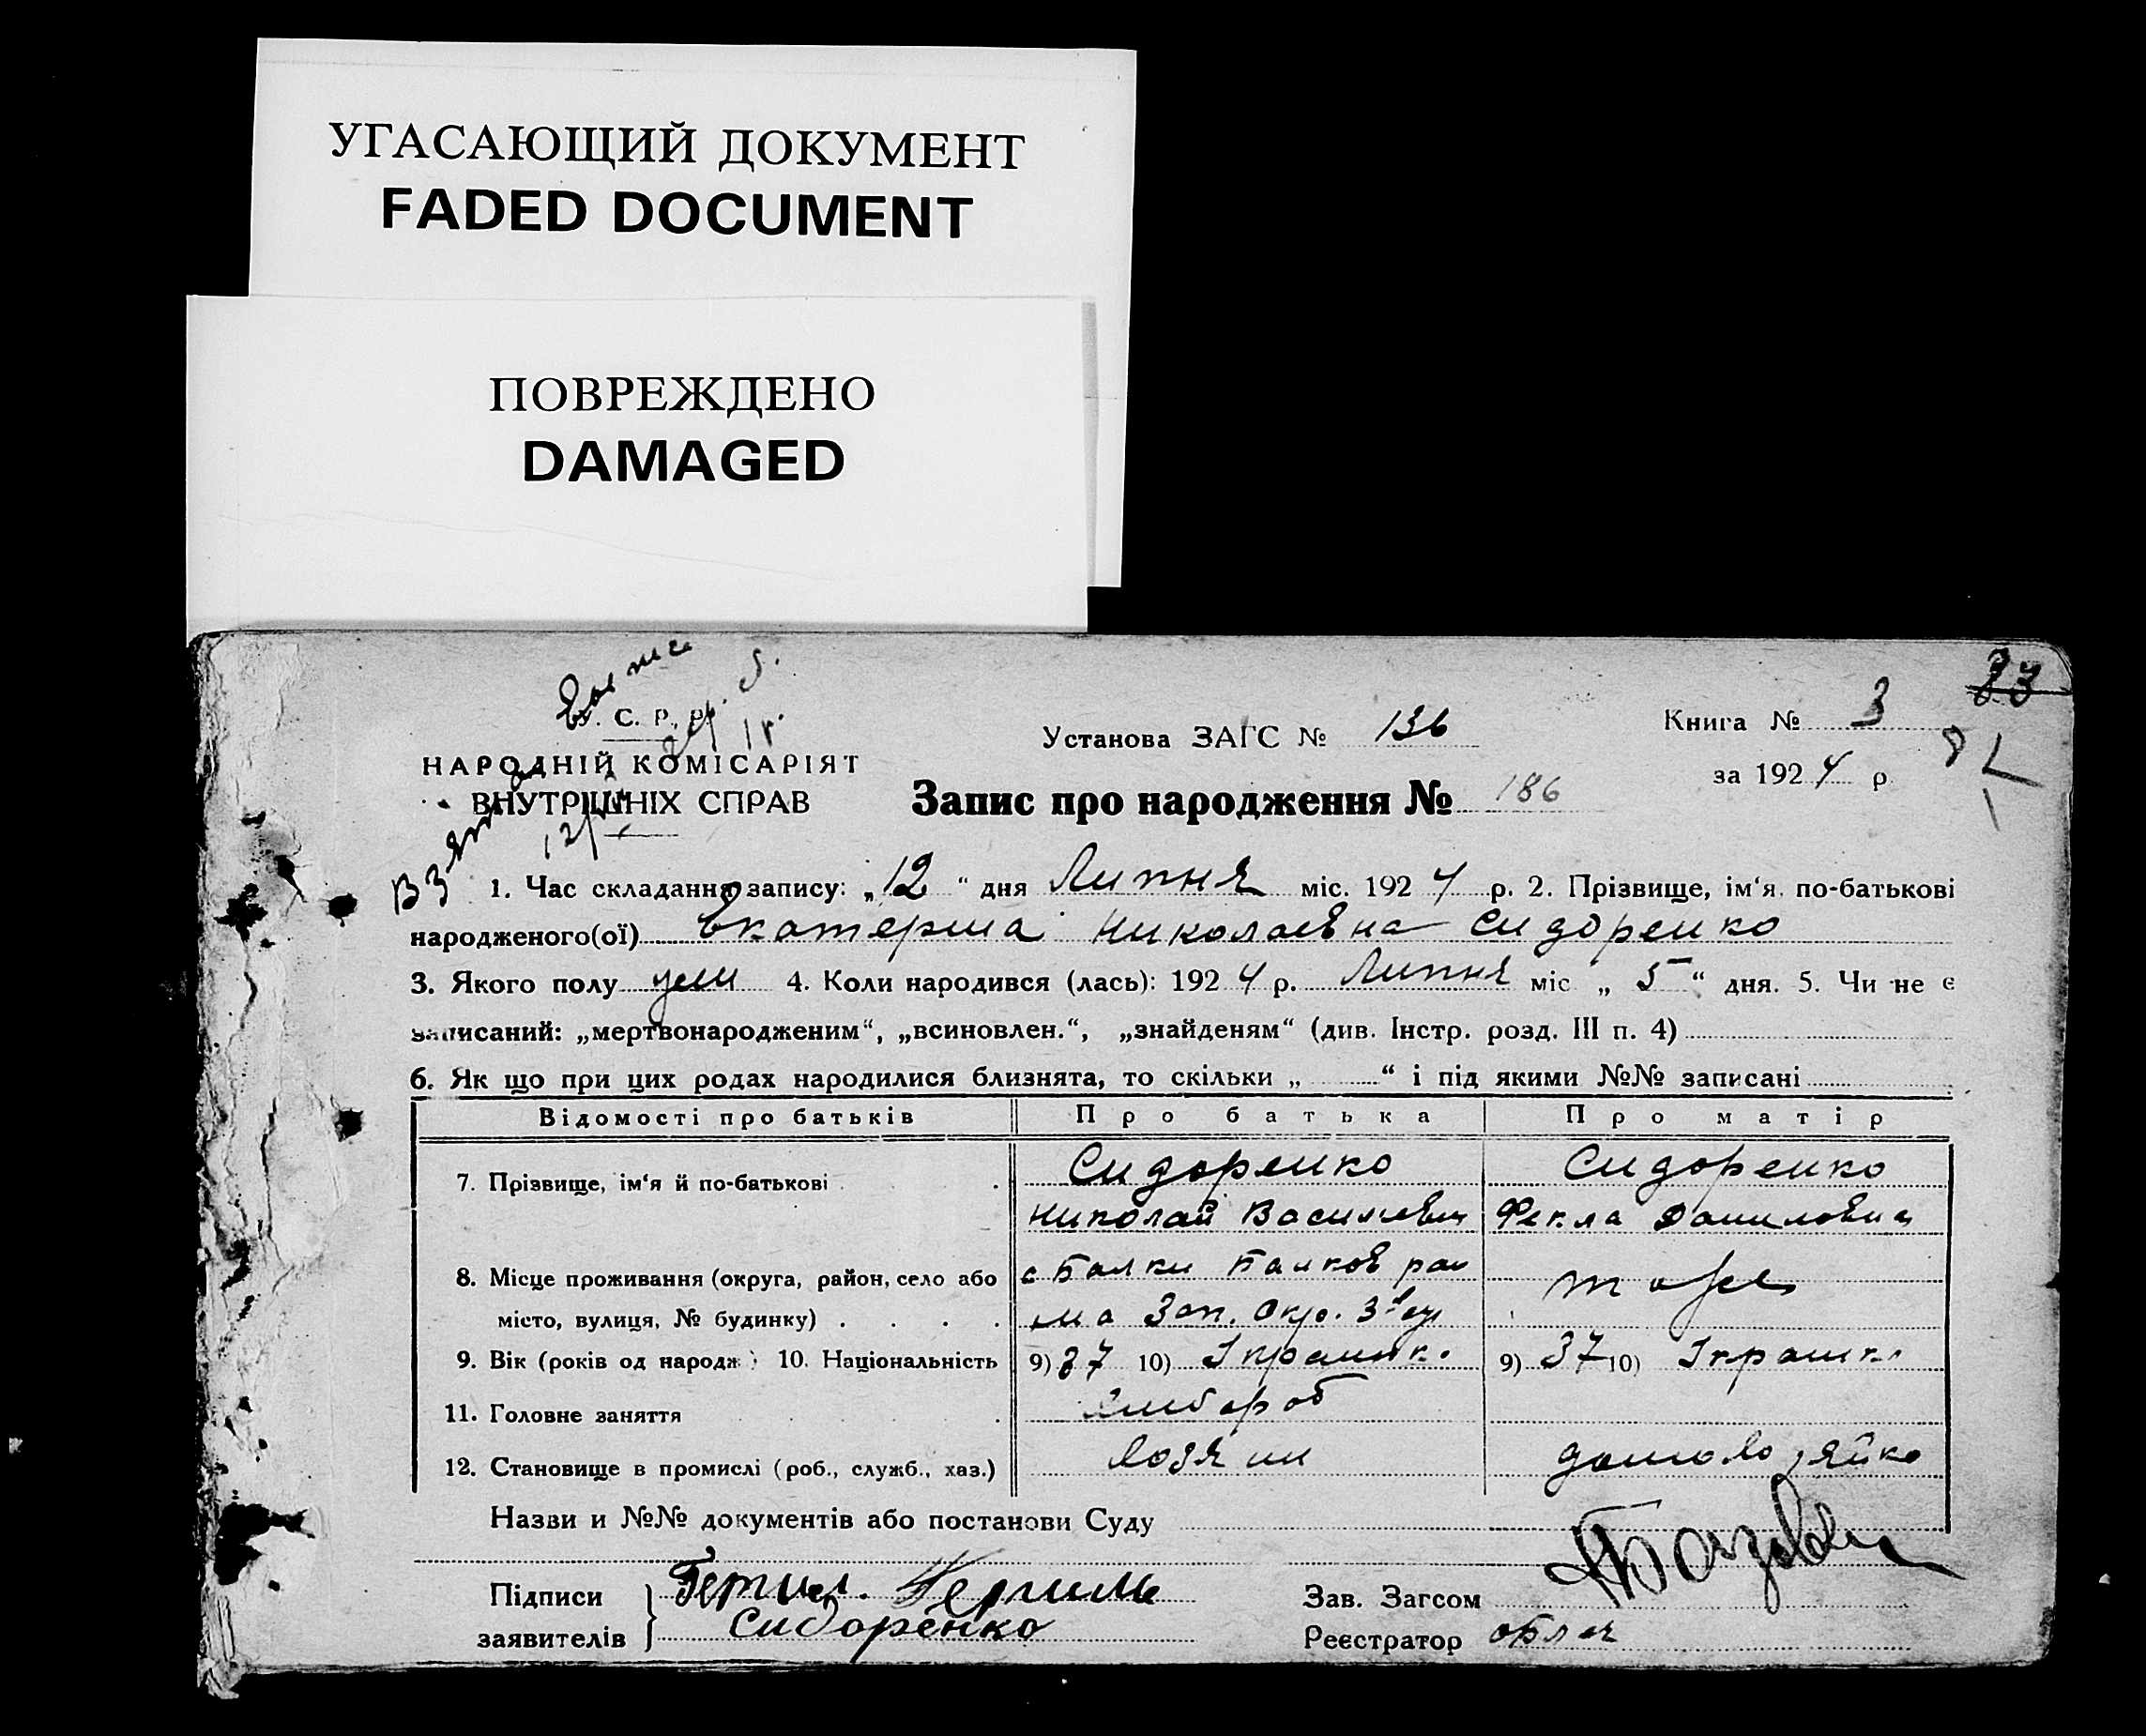 УГАСАЮЩИЙ ДОКУМЕНТ
FADED DOCUMENT
ПОВРЕЖДЕНО
DAMAGED
33
У. С. Р. Р.
НАРОДНІЙ КОМІСАРІЯТ
ВНУТРІШНІХ СПРАВ
Установа ЗАГС № 136
Книга № 3
за 1924 р
Запис про народження № 186
1. Час складання запису: „12“ дня Липня міс. 1924 р. 2. Прізвище, ім‘я, по-батькові
народженого(ої) Екатерина Николаевна Сидоренко
3. Якого полу 4. Коли народився (лась): 1924 р. Липня міс „5“ дня. 5. Чи не є
записаний: „мертвонародженим“, „всиновлен.“, „знайденям“ (див. Інстр. розд. III п. 4)
6. Як що при цих родах народилися близнята, то скільки „ “ і під якими №№ записані
Відомості про батьків Про батька Про матір
7. Прізвище, ім‘я й по-батькові Сидоренко Сидоренко
Николай Васильевич Фекла Даниловна
8. Місце проживання (округа, район, село або с Балки Балков рай
місто, вулиця, № будинку) Зап. Окр. тоже
9. Вік (років од народж.) 10. Національність 9) 37 10) 9) 37 10)
11. Головне заняття хлибороб
12. Становище в промислі (роб., служб., хаз.) хозяин домохозяйка
Назви и №№ документів або постанови Суду
Підписи
заявителів Сидоренко
Зав. Загсом
Реєстратор